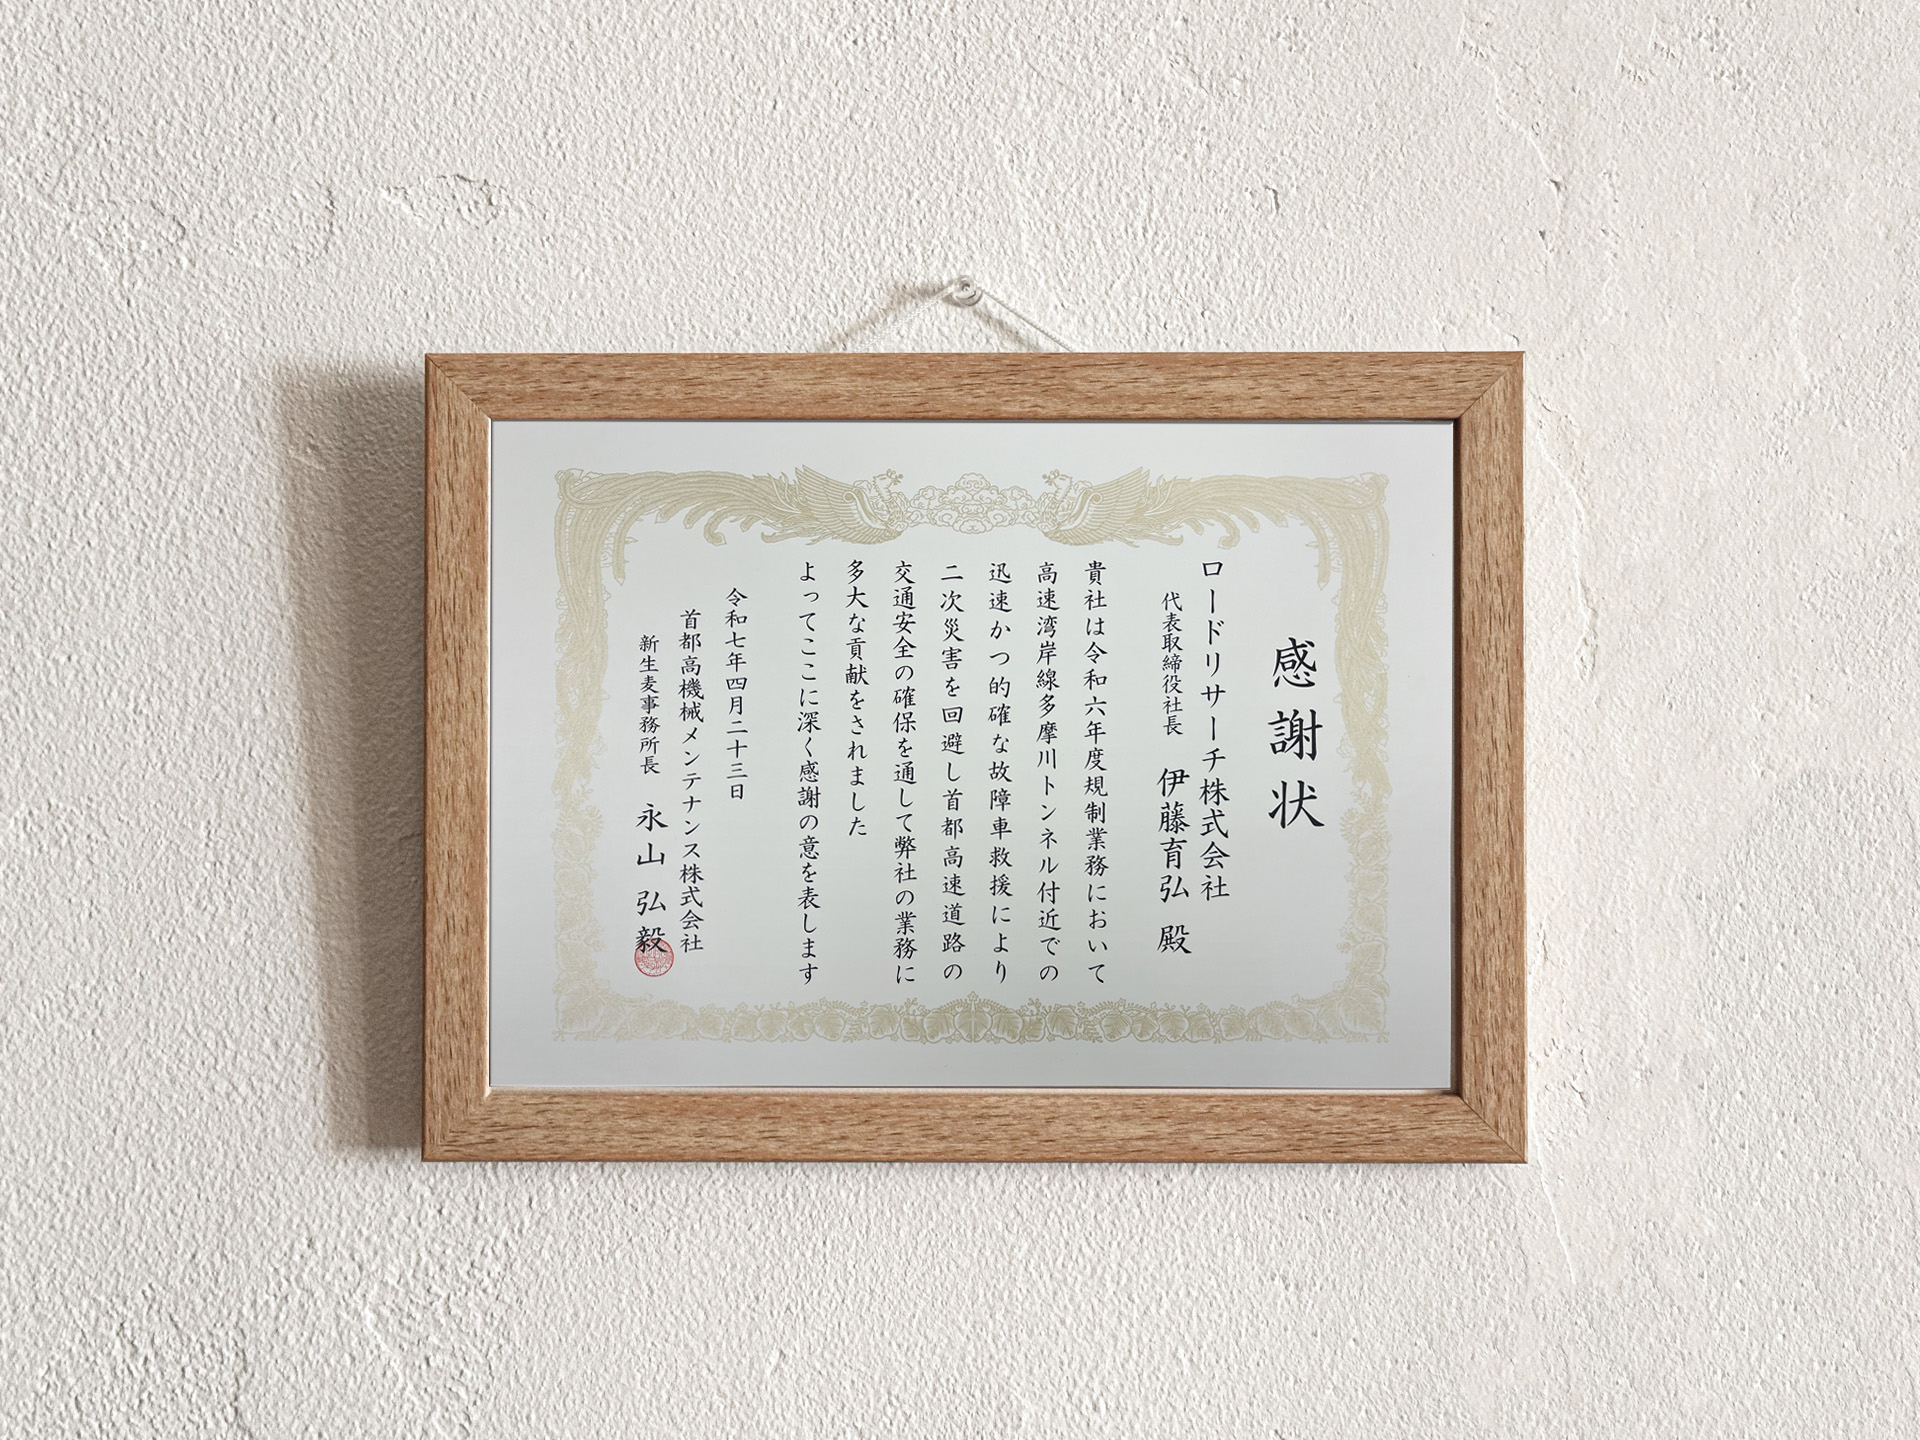 感謝状
ロードリサーチ株式会社
代表取締役社長 伊藤育弘 殿
貴社は令和六年度規制業務において
高速湾岸線多摩川トンネル付近での
迅速かつ的確な故障車救援により
二次災害を回避し首都高速道路の
交通安全の確保を通して弊社の業務に
多大な貢献をされました
よってここに深く感謝の意を表します
令和七年四月二十三日
首都高機械メンテナンス株式会社
新生麦事務所長 永山弘毅